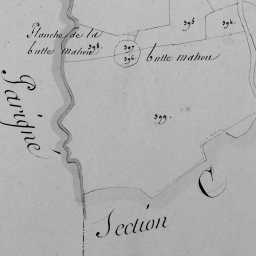 Planche de la
butte mahou
395
394
398
397
396
butte mahou
399.
Parigné
C
Section